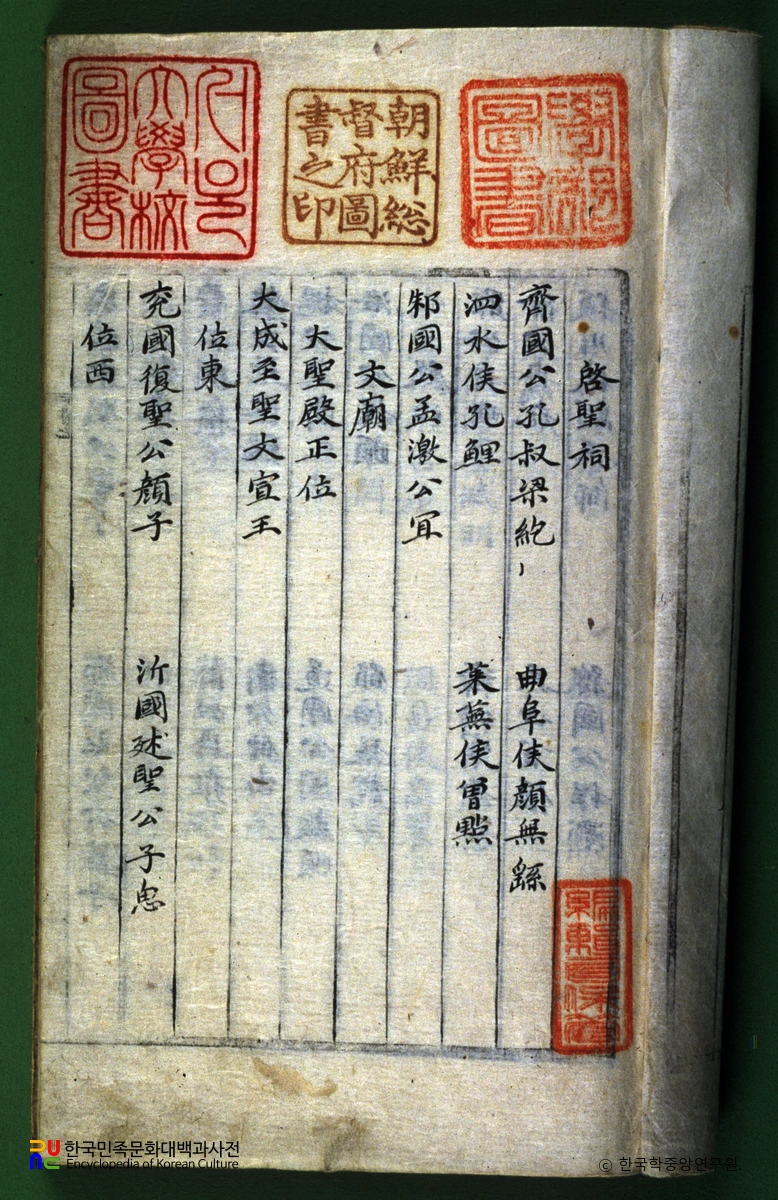 朝鮮総
督府圖
書之印
大學校
圖書
啓聖祠
齊國公孔叔梁紇
曲阜侯顔無繇
泗水侯孔鯉
萊蕪侯曾點
邾國公孟激公冝
文廟
大聖殿正位
大成至聖文宣王
位東
兗國復聖公顔子
沂國述聖公子思
位西
한국민족문화대백과사전
Encyclopedia of Korean Culture
© 한국학중앙연구원